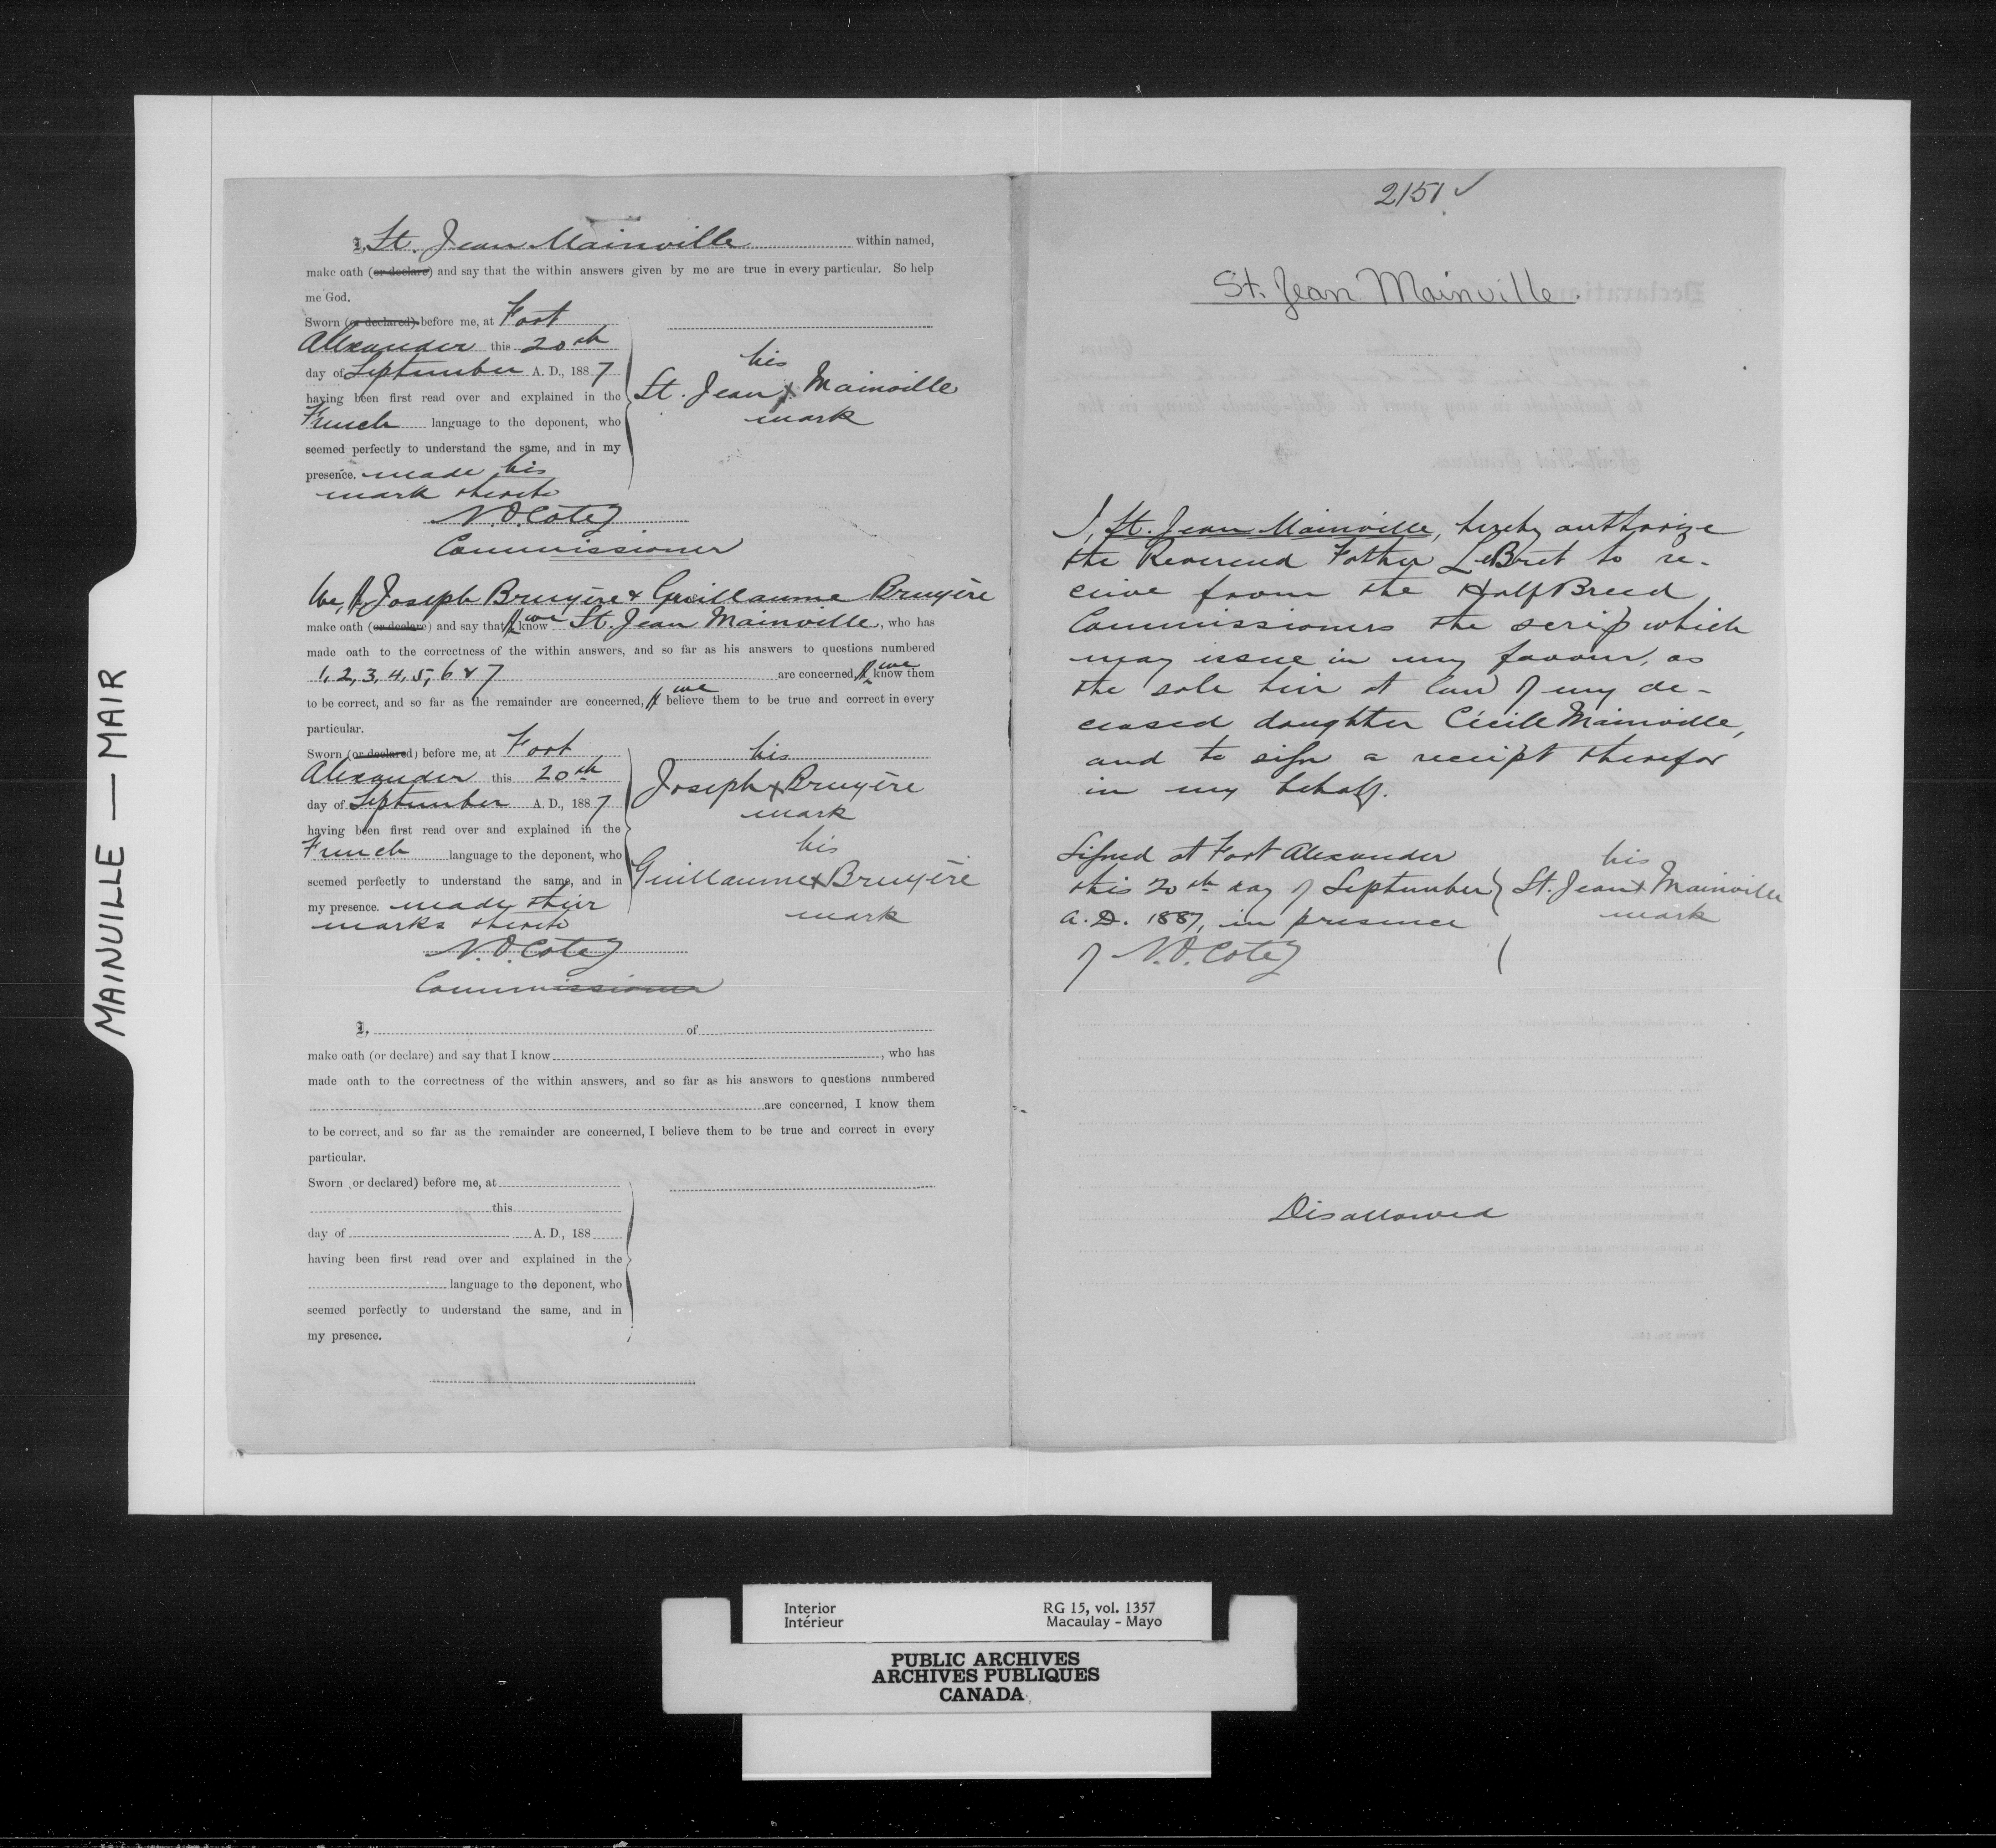 MAINVILLE — MAIR
I, St. Jean Mainville within named,
make oath (or declare) and say that the within answers given by me are true in every particular. So help
me God.
Sworn (or declared) before me, at Fort
Alexander this 20th
day of September A. D., 1887
having been first read over and explained in the
French language to the deponent, who
seemed perfectly to understand the same, and in my
presence. made his
mark thereto
N.O. Coté
Commissioner
his
St. Jean x Mainville
mark
We, I, Joseph Bruyère & Guillaume Bruyère
make oath (or declare) and say that I we know St. Jean Mainville, who has
made oath to the correctness of the within answers, and so far as his answers to questions numbered
1, 2, 3, 4, 5, 6 & 7 are concerned, I we know them
to be correct, and so far as the remainder are concerned, I we believe them to be true and correct in every
particular.
Sworn (or declared) before me, at Fort
Alexander this 20th
day of September A. D., 1887
having been first read over and explained in the
French language to the deponent, who
seemed perfectly to understand the same, and in
my presence. made their
marks thereto
N.O. Coté
Commissioner
his
Joseph x Bruyère
mark
his
Guillaume x Bruyère
mark
I, of
make oath (or declare) and say that I know , who has
made oath to the correctness of the within answers, and so far as his answers to questions numbered
are concerned, I know them
to be correct, and so far as the remainder are concerned, I believe them to be true and correct in every
particular.
Sworn (or declared) before me, at
this
day of A. D., 188
having been first read over and explained in the
language to the deponent, who
seemed perfectly to understand the same, and in
my presence.
2151 ✓
St. Jean Mainville.
I, St. Jean Mainville, hereby authorize
the Reverend Father LeBret to re-
ceive from the HalfBreed
Commissioners the scrip which
may issue in my favour, as
the sole heir at law of my de-
ceased daughter Cécile Mainville,
and to sign a receipt therefor
in my behalf.
Signed at Fort Alexander
this 20th day of September
A.D. 1887, in presence
of N.O. Coté
his
St. Jean x Mainville
mark
Disallowed
Interior
Intérieur
RG 15, vol. 1357
Macaulay - Mayo
PUBLIC ARCHIVES
ARCHIVES PUBLIQUES
CANADA